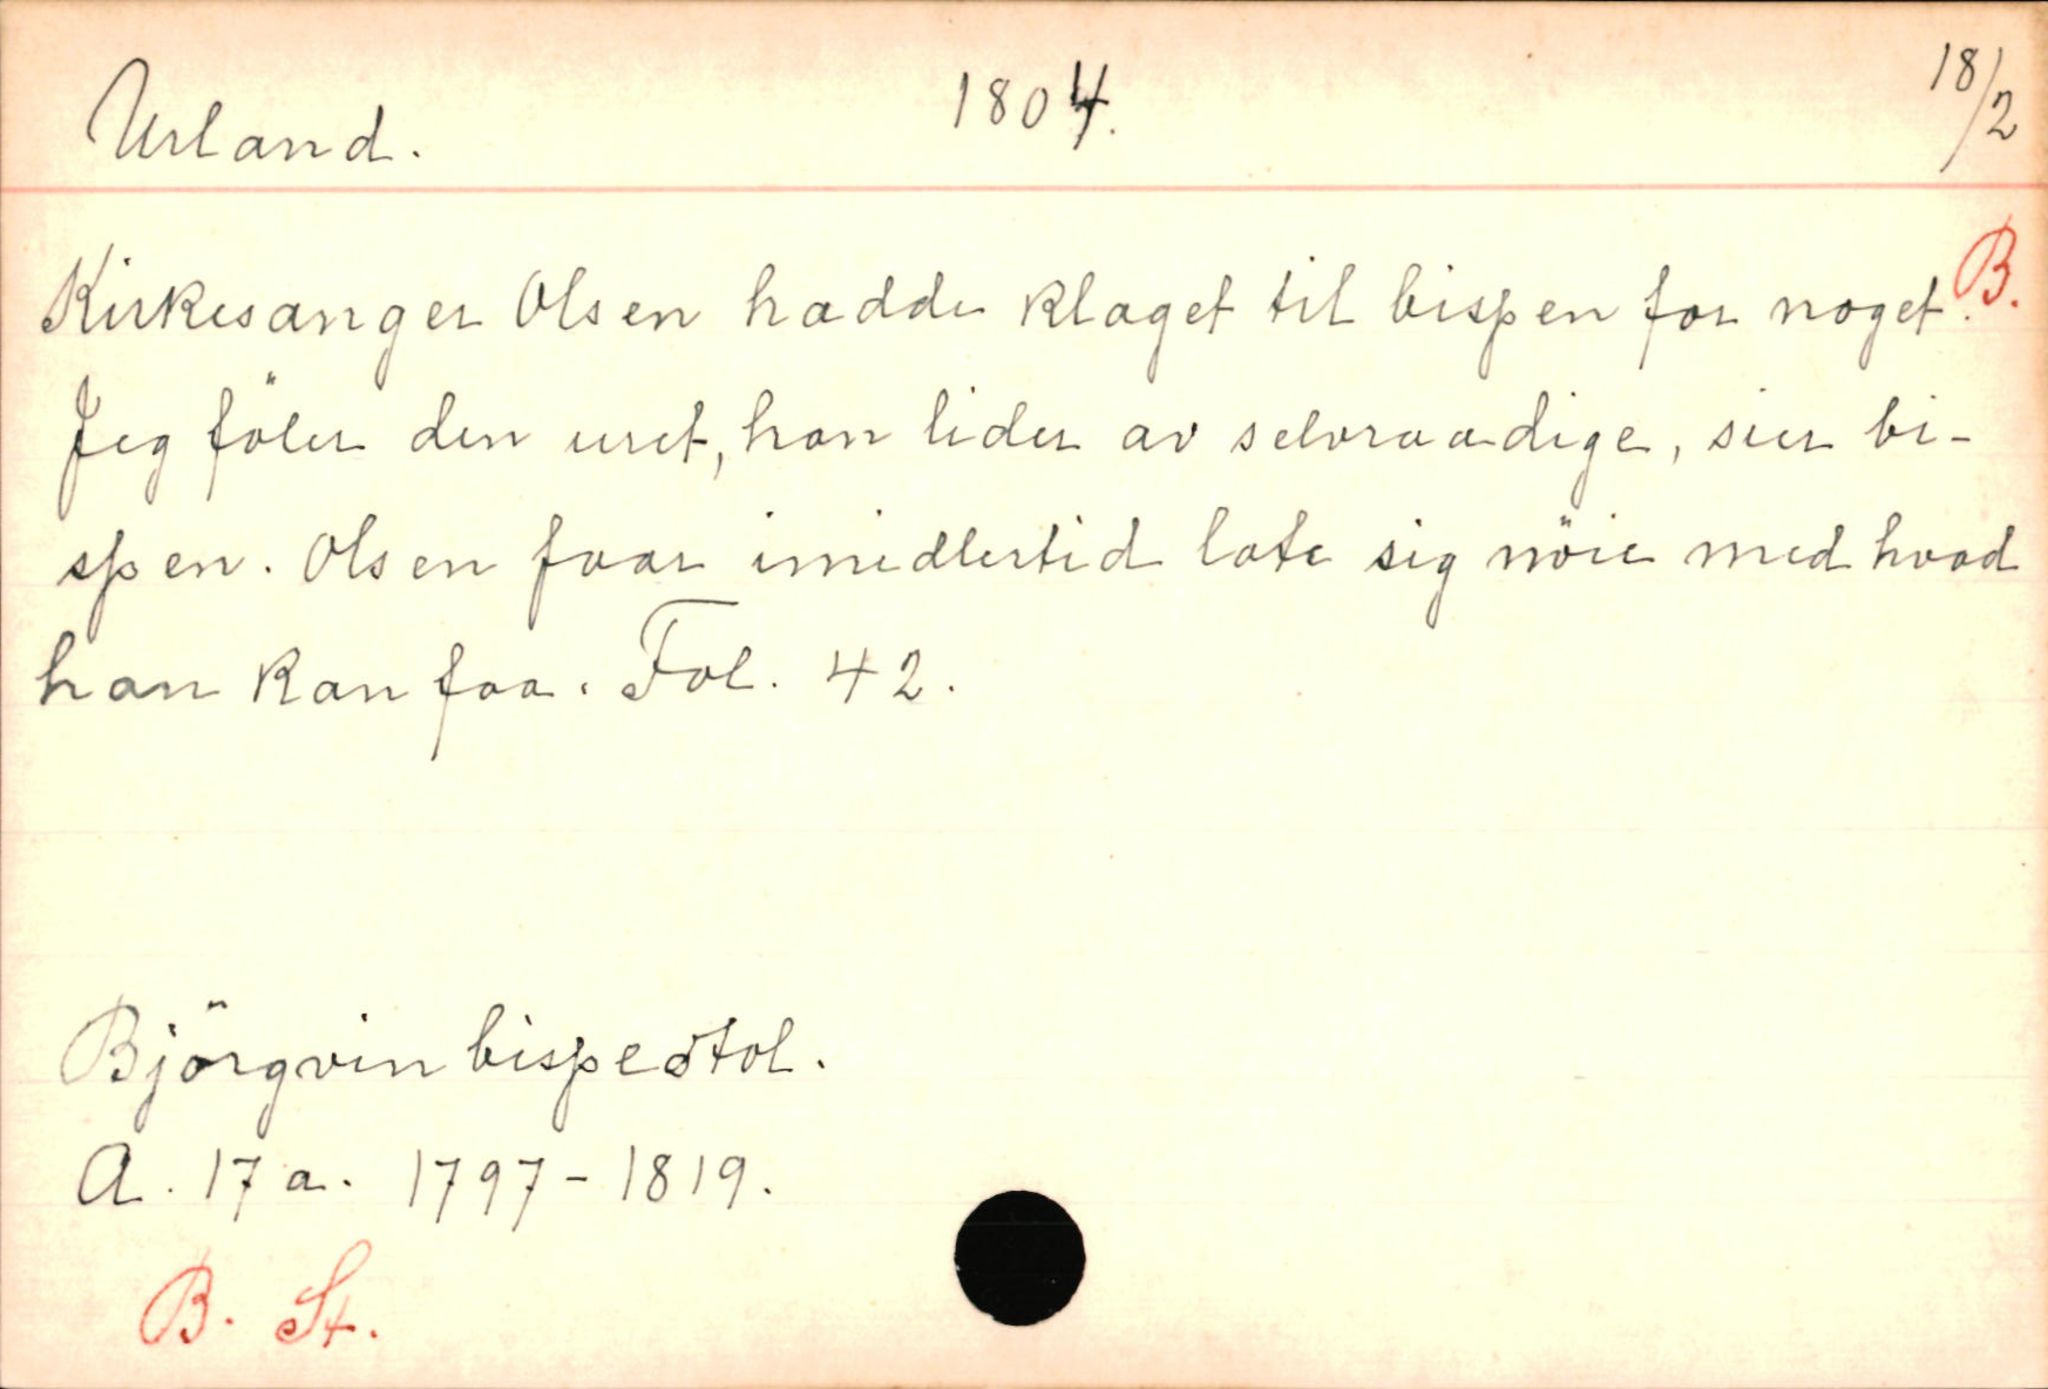 Urland. 1804. 18/2
B.
Kirkesanger Olsen hadde klaget til bispen for noget.
Jeg föler den uret, han lider av selvraadige, sier bi-
spen. Olsen faar imidlertid late sig nöie med hvad
han kan faa. Fol. 42.
Björgvin bispestol.
A. 17 a. 1797-1819.
B. St.